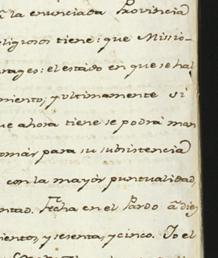 la enunciada Provincia
eligiosos tiene: que Missio-
rages: el estado en que se hal
miento, y ultimamente si
ue ahora tiene se podrá man
tomár para su subsistencia
con la mayór puntualidad,
ntad. Fecha en el Pardo á diez
cientos, y sesenta, y cinco. Yo el